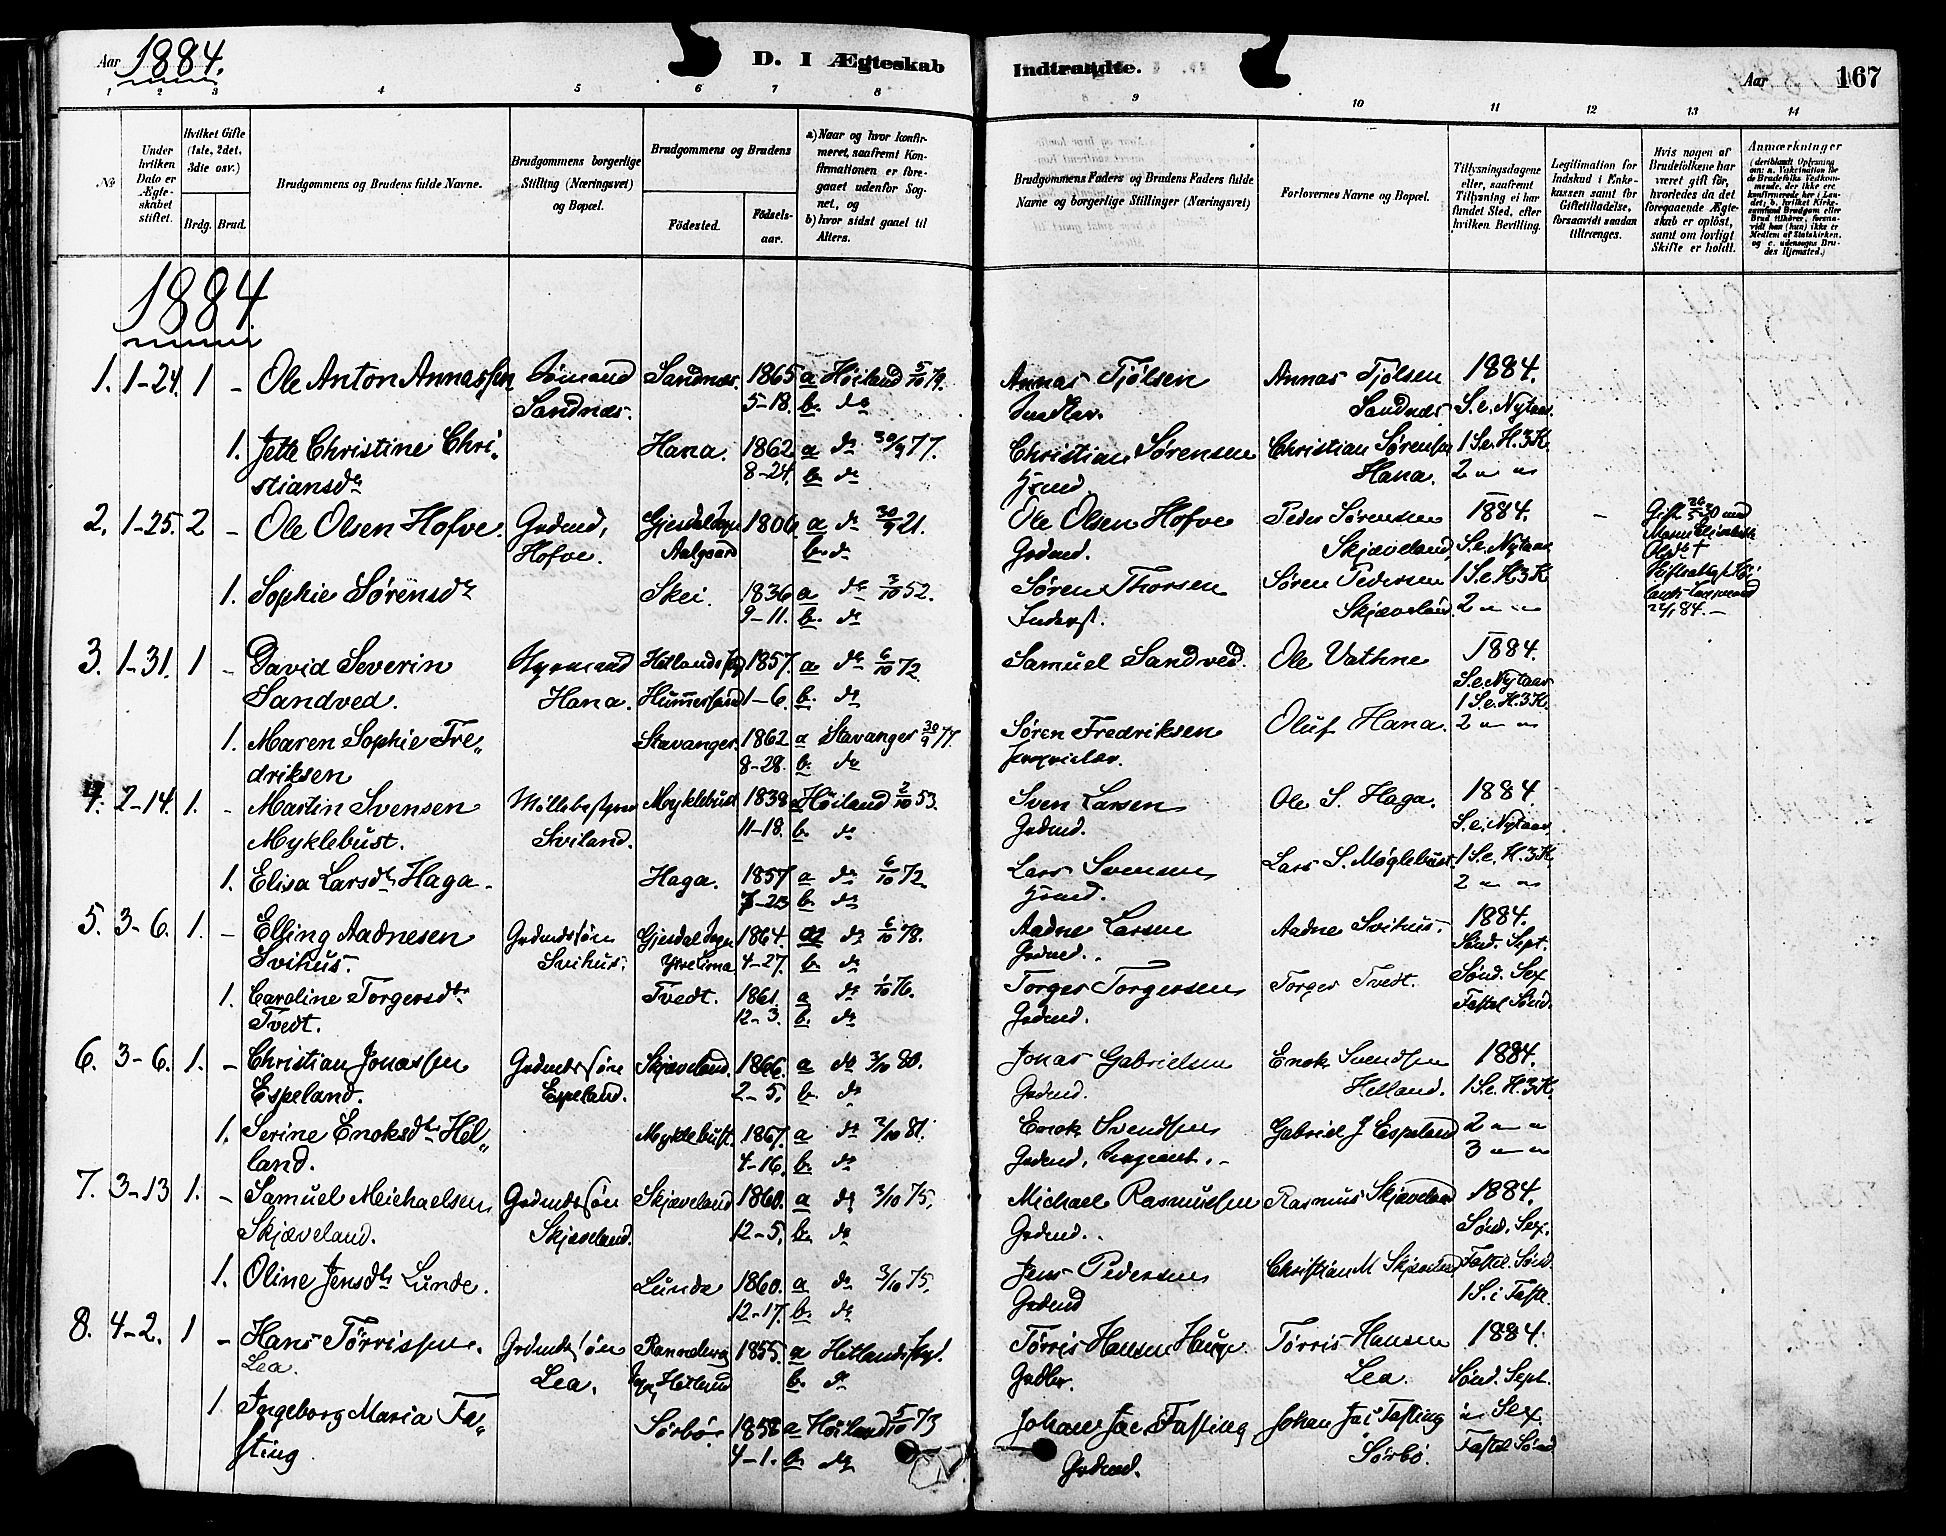 Aar 1884.
D. I Ægteskab Indtraadte.
Aar 167
1 2 3 4 5 6 7 8 9 10 11 12 13 14
No
Under hvilken Dato er Ægteskabet stiftet.
Hvilket Gifte (1ste, 2det, 3die osv.)
Brdg. Brud.
Brudgommens og Brudens fulde Navne.
Brudgommens borgerlige Stilling (Næringsvei) og Bopæl.
Brudgommens og Brudens
Fødested.
Fødselsaar.
a) Naar og hvor konfirmeret, saafremt Konfirmationen er foregaaet udenfor Sognet, og
b) hvor sidst gaaet til Alters.
Brudgommens Faders og Brudens Faders fulde Navne og borgerlige Stillinger (Næringsvei)
Forlovernes Navne og Bopæl.
Tillysningsdagene eller, saafremt Tillysning ei har fundet Sted, efter hvilken Bevilling.
Legitimation for Indskud i Enkekassen samt for Giftetilladelse, forsaavidt saadan tiltrænges.
Hvis nogen af Brudefolkene har været gift før, hvorledes da det foregaaende Ægteskab er opløst, samt om lovligt Skifte er holdt.
Anmærkninger
1884.
1. 1-24. 1 - Ole Anton Annassen Sandnæs. 1865 a Høiland 5/10 79. Annas Tjølsen Annas Tjølsen 1884.
Sandnæs. 5-18. b. do Sandnæs S. e. Nytaar.
1. Jette Christine Chri- Hana. 1862 a do 30/9 77. Christian Sørensen Christian Sørensen 1 S. e. H. 3 K.
stiansdr 8-24. b. do Hana. 2 " "
2. 1-25. 2 - Ole Olsen Hofve. Grdmd, Gjesdal Sogn 1806 a do 30/9 21. Ole Olsen Hofve Peder Sørensen 1884. -
Hofve. Aalgaard b. do Grdmd. Skjæveland, S. e. Nytaar
1. Sophie Sørensdr Skei. 1836 a do 3/10 52. Søren Thorsen Søren Pedersen 1 S. e. H. 3 K
9-11. b. do Inderst. Skjæveland. 2 " "
3. 1-31. 1 - David Severin 1857. a do 6/10 72. Samuel Sandved. Ole Vathne 1884.
Sandved. Hana. 1-6. b. do S. e. Nytaar
1 S. e. H. 3 K.
1. Maren Sophie Fre- Stavanger. 1862 a Stavanger 30/9 77. Søren Fredriksen Oluf Hana. 2 " "
driksen 8-28. b. do
4. 2-14. 1. - Martin Svensen Myklebust 1838 a Høiland 2/10 53. Sven Larsen Ole S. Haga. 1884.
Myklebust. Sviland. 11-18. b. do Grdmd. S. e. Nytaar.
1. Elisa Larsdr Haga. Haga. 1857 a do 6/10 72. Lars Svensen Lars S. Møglebust. 1 S. e. H. 3 K
7-23 b. do 2 " "
5. 3-6. 1. - Elling Aadnesen Grdmdssøn Gjesdal Sogn 1864. a do 6/10 78. Aadne Larsen Aadne Svihus. 1884.
Svihus. Svihus. 4-27. b. do Grdmd. Sønd. Sept.
1. Caroline Torgersdr Tvedt. 1861. a do 1/10 76. Torger Torgersen Torger Tvedt. Sønd. Sex
Tvedt. 12-3. b. do Grdmd. Fastel. Sønd.
6. 3-6. 1. - Christian Jonassen Grdmdssøn Skjæveland. 1866. a do 3/10 80. Jonas Gabrielsen Enok Svendsen 1884.
Espeland. Espeland. 2-5. b. do Grdmd. Helland. 1 S. e. H. 3 K
1. Serine Enoksdr Hel- Myklebust. 1867. a do 2/10 81. Enok Svendsen Gabriel J Espeland 2 " "
land. 4-16. b. do Grdmd. 3 " "
7. 3-13 1. - Samuel Meichaelsen Grdmdssøn Skjæveland 1860. a do 3/10 75. Michael Rasmussen Rasmus Skjæveland 1884.
Skjæveland. Skjæveland. 12-5. b. do Grdmd. Sønd. Sex.
1. Oline Jensdr Lunde. Lunde 1860. a do 3/10 75. Jens Pedersen Christian M Skjæveland Fastel. Sønd.
12-17. b. do Grdmd 1 S. i Fast.
8. 4-2. 1 - Hans Tørrissen. Grdmdssøn 1855. a Hetlands Sogn. Tørris Hansen Hauge Tørris Hansen 1884.
Lea. Lea. Hetland b. do Lea. Sønd. Sept.
1 Ingeborg Maria Fa- Sørbø. 1858 a Høiland 5/10 73 Johan Jac. Fasting Johan Jac Fasting " Sex.
sting 4-1. b. do Grdmd. Sørbø. Fastel. Sønd